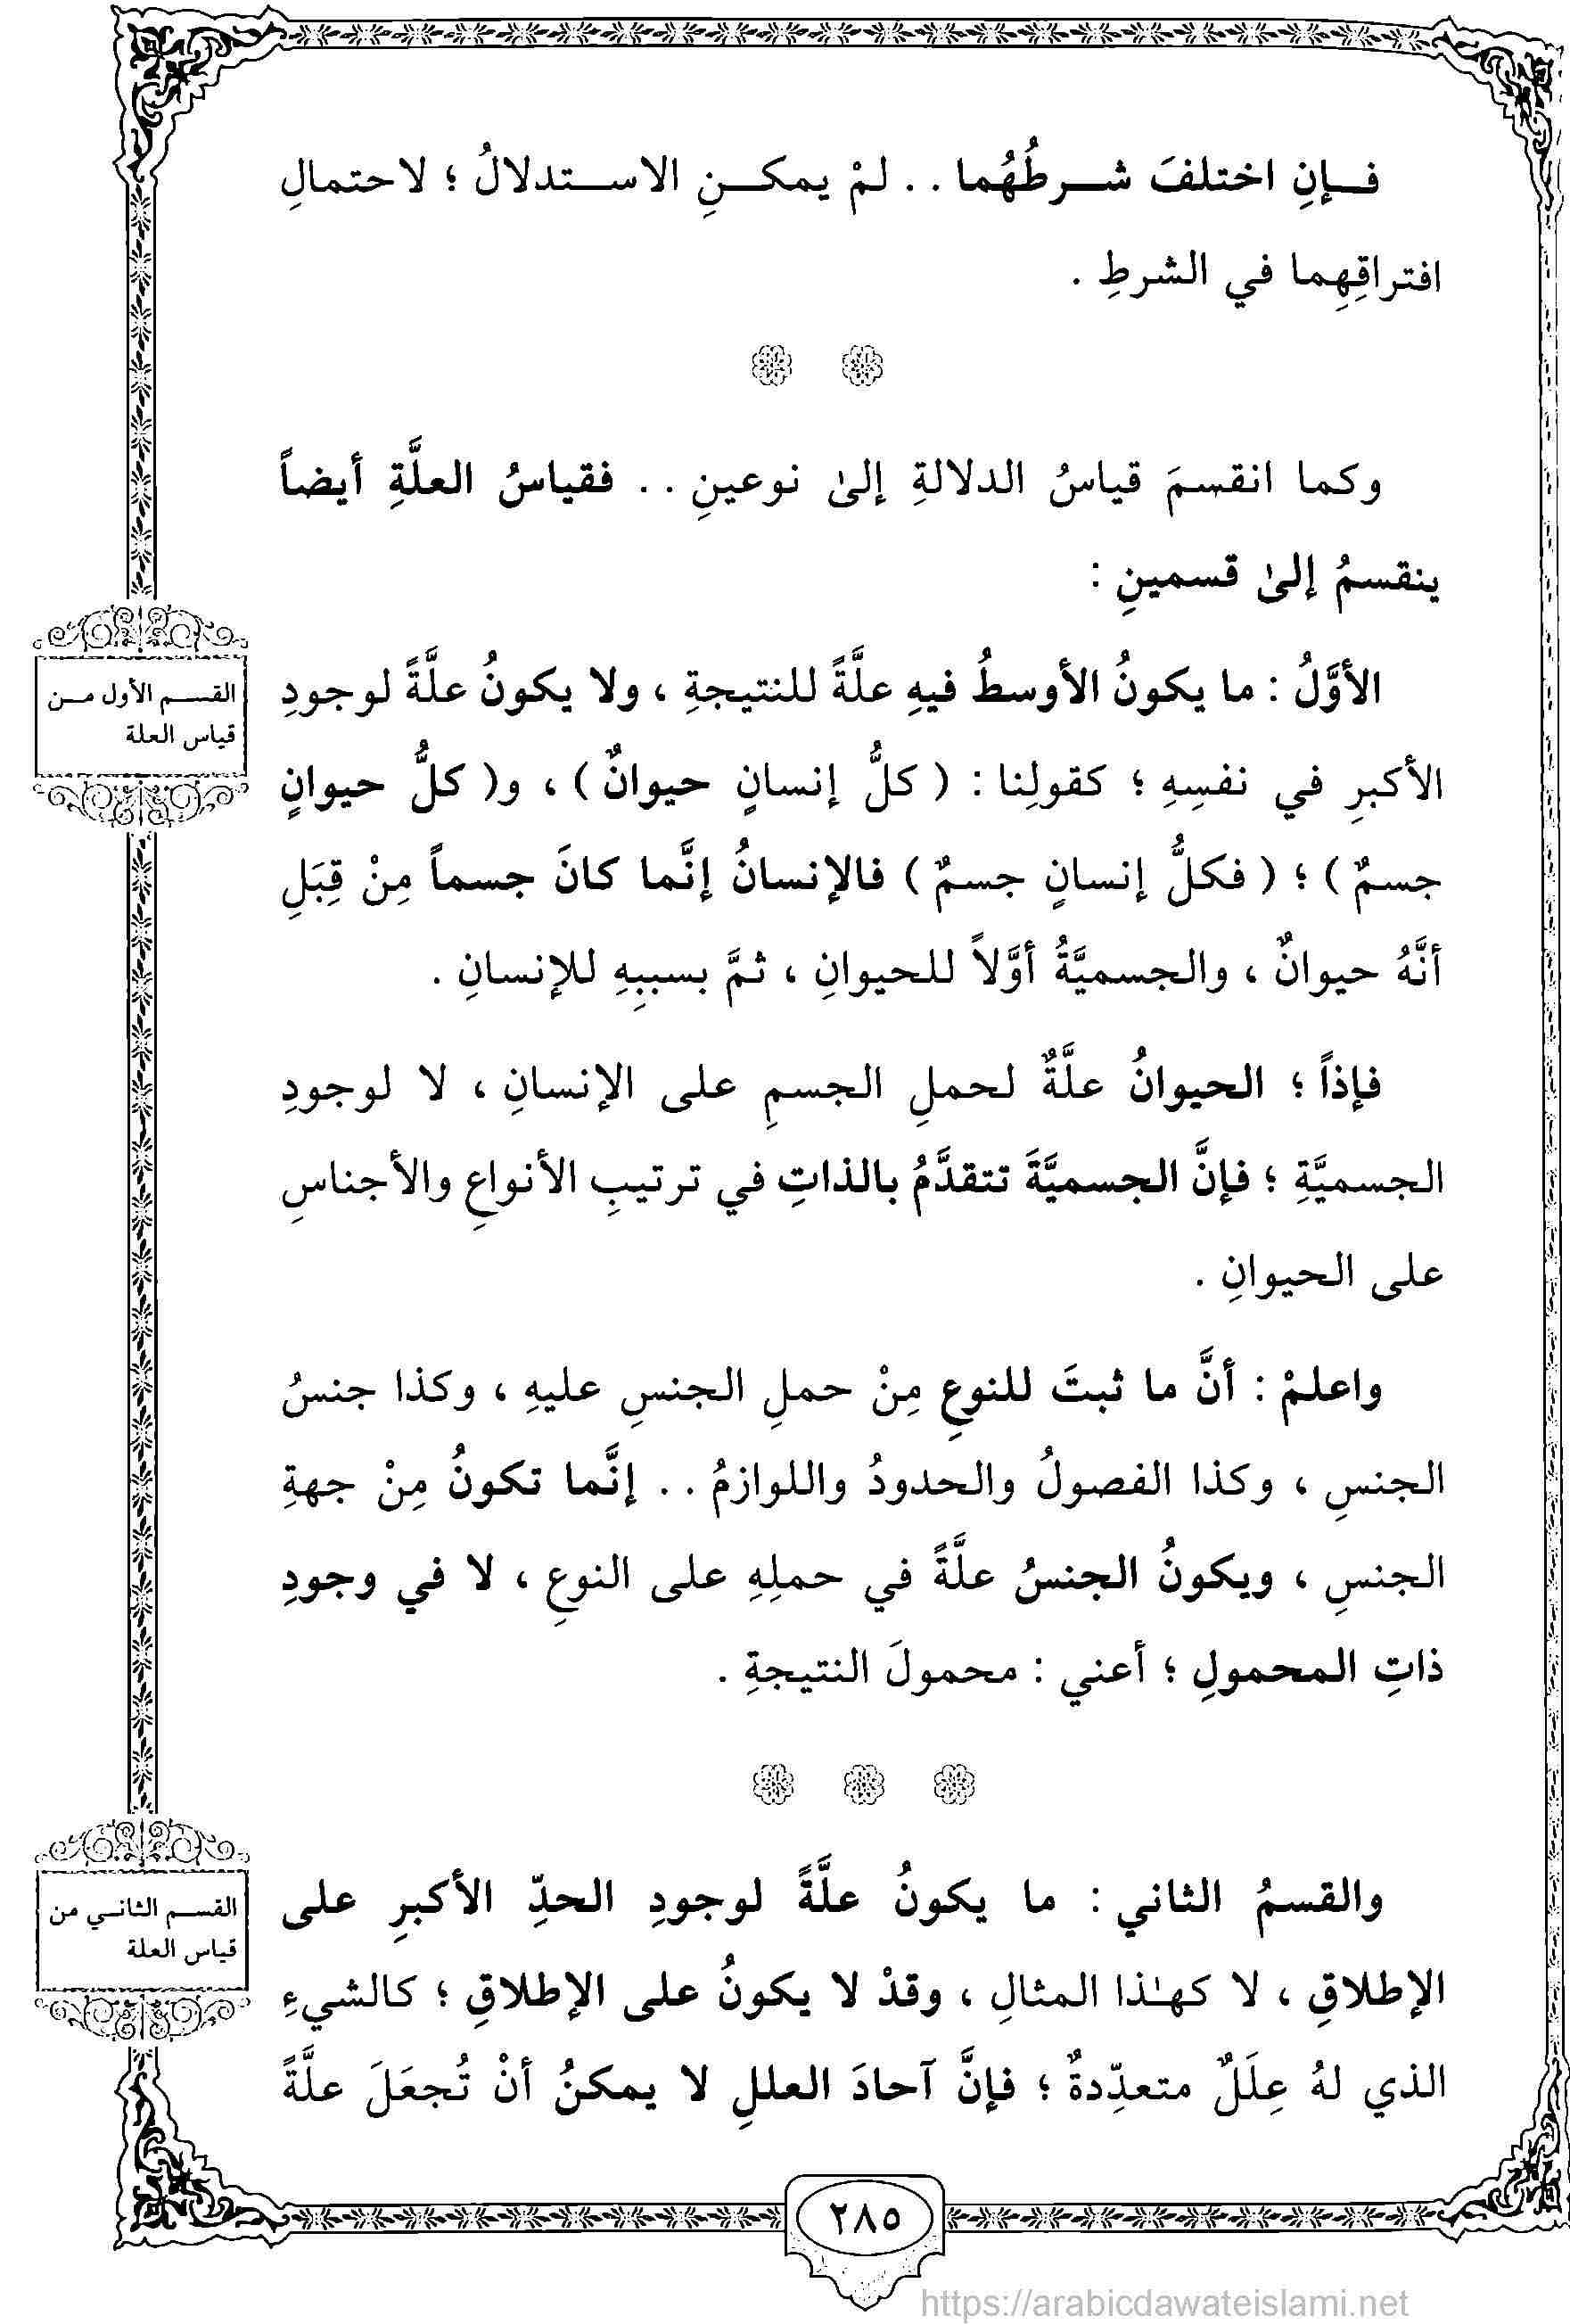 فإنِ اختلفَ شرطُهُما . . لمْ يمكنِ الاستدلالُ ؛ لاحتمالِ
افتراقِهِما في الشرطِ .
وكما انقسمَ قياسُ الدلالةِ إلىٰ نوعينِ . . فقياسُ العلَّةِ أيضاً
ينقسمُ إلىٰ قسمينِ :
القسم الأول من
قياس العلة
الأوَّلُ : ما يكونُ الأوسطُ فيهِ علَّةً للنتيجةِ ، ولا يكونُ علَّةً لوجودِ
الأكبرِ في نفسِهِ ؛ كقولِنا : ( كلُّ إنسانٍ حيوانٌ ) ، و( كلُّ حيوانٍ
جسمٌ ) ؛ ( فكلُّ إنسانٍ جسمٌ ) فالإنسانُ إنَّما كانَ جسماً مِنْ قِبَلِ
أنَّهُ حيوانٌ ، والجسميَّةُ أوَّلاً للحيوانِ ، ثمَّ بسببِهِ للإنسانِ .
فإذاً ؛ الحيوانُ علَّةٌ لحملِ الجسمِ على الإنسانِ ، لا لوجودِ
الجسميَّةِ ؛ فإنَّ الجسميَّةَ تتقدَّمُ بالذاتِ في ترتيبِ الأنواعِ والأجناسِ
على الحيوانِ .
واعلمْ : أنَّ ما ثبتَ للنوعِ مِنْ حملِ الجنسِ عليهِ ، وكذا جنسُ
الجنسِ ، وكذا الفصولُ والحدودُ واللوازمُ . . إنَّما تكونُ مِنْ جهةِ
الجنسِ ، ويكونُ الجنسُ علَّةً في حملِهِ على النوعِ ، لا في وجودِ
ذاتِ المحمولِ ؛ أعني : محمولَ النتيجةِ .
القسم الثاني من
قياس العلة
والقسمُ الثاني : ما يكونُ علَّةً لوجودِ الحدِّ الأكبرِ على
الإطلاقِ ، لا كهـٰذا المثالِ ، وقدْ لا يكونُ على الإطلاقِ ؛ كالشيءِ
الذي لهُ عِلَلٌ متعدِّدةٌ ؛ فإنَّ آحادَ العللِ لا يمكنُ أنْ تُجعَلَ علَّةً
٢٨٥
https://arabicdawateislami.net